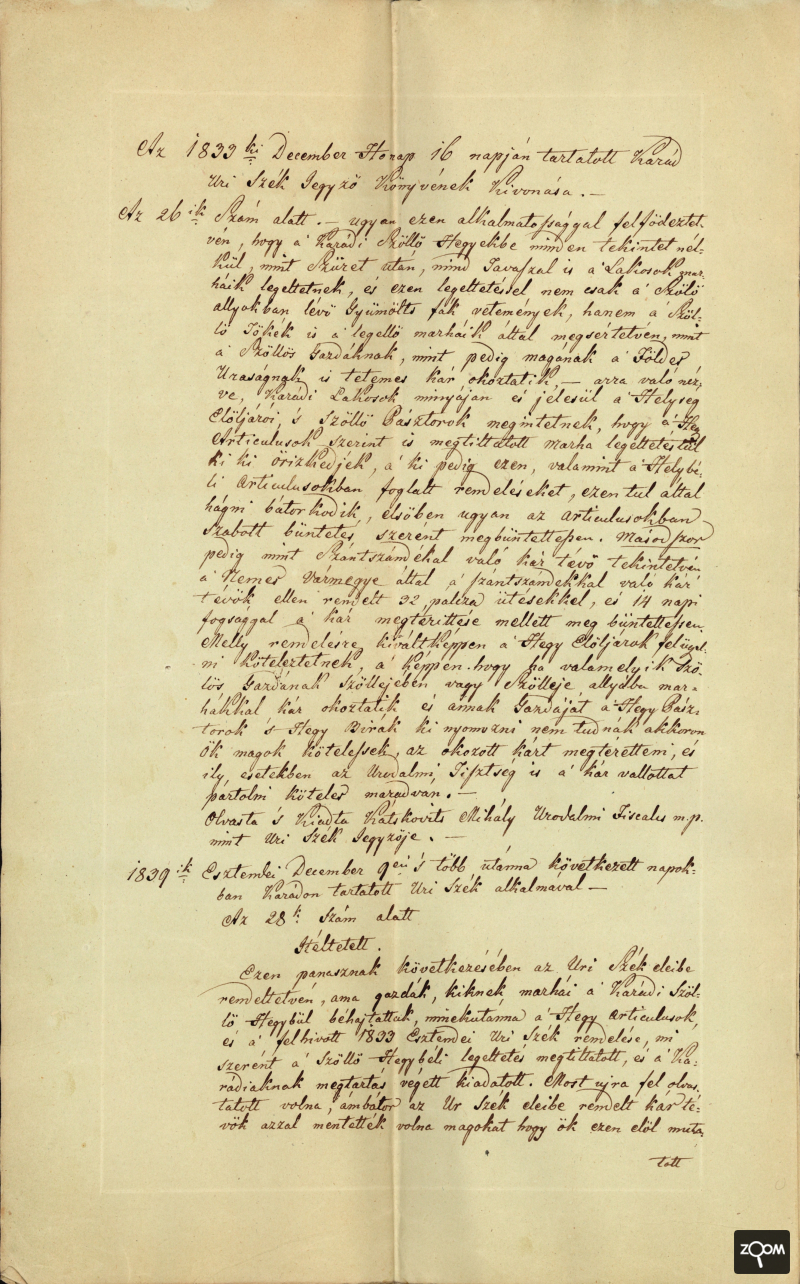 Az 1833 ki December Honap 16 napján tartatott Karád
Uri Szék Jegyző Könyvének Kivonása. —
Az 26ik Szám alatt. — ugyan ezen alkalmatossággal felfödeztet-
vén, hogy a' Karádi Szöllő Hegyekbe minden tekintet nél-
kül, mint Szüret után, mind Tavaszal is a' Lakosok mar-
háik legeltetnek, és ezen legeltetésel nem csak a' Szőlő
allyokban lévő Gyümölts fák vetemények, hanem a' Szöl-
lő Tőkék is a' legellő marháik által megsértetvén, mint
a' Szöllős Gazdáknak, mint pedig magának a' Földes
Uraságnak is tetemes kár okoztatik, — arra való néz-
ve, Karádi Lakosok minyáján és jelesül a' Helység
Elöljárói, 's Szöllő Pásztorok megintetnek, hogy a' Hegy
Articulusok szerint is megtiltatott marha legeltetéstül
ki ki őrizkedjek, a' ki pedig ezen, valamint a' Helybé-
li Articulusokban foglalt rendeléseket, ezen tul által
hágni bátorkodik, elsőben ugyan az articulusokban
szabott büntetés szerént megbüntettessen. Másodszor
pedig mint Szántszándékal való kár tévő tekintetvén
a' Nemes Vármegye által a' szántszandekkal való kár
tévők ellen rendelt 32 palcza ütésekkel, és 14 napi
fogsaggal a' kár megtérittése mellett meg büntettessen
Melly rendelésre kiváltképpen a' Hegy Elöljárok felügyel-
ni köteleztetnek, a' képpen hogy ha valamelyik Szö-
lős Gazdának Szöllejében vagy Szölleje allyába mar-
hákkal kár okoztatik és annak Gazdáját a' Hegy Pász-
torok 's Hegy Birák ki nyomozni nem tudnák akkoron
ők magok kötelessek, az okozott kárt megterétteni, és
ily esetekben az Urodalmi Tisztség is a' kár vallottat
partolni köteles maradván. —
Olvasta 's Kiadta Kátskovits Mihály Urodalmi Fiscalus m.p.
mint Uri Szék Jegyzője. —
1839ik Esztendei December 9én 's több utánna következett napok-
ban Karádon tartatott Uri Szék alkalmaval —
Az 28k Szám alatt
Itéltetett.
Ezen panasznak következésében az Uri Szék eleibe
rendeltetvén, ama gazdák, kiknek marhái a' Karádi Szöl-
lő Hegybül béhajtattak, minekutánna a' Hegy Articulusok,
és a' felhivott 1833 Esztendei Uri Szék rendelése, mi
szerént a' Szöllő Hegybéli legeltetés megtiltatott, és a' Ka-
rádiaknak megtartás végett kiadatott. Most ujra fel olvas
tatott volna, ámbátor az Ur Szék eleibe rendelt kárté-
vők azzal mentették volna magokat hogy ők ezen elöl muta-
tott
ZOOM